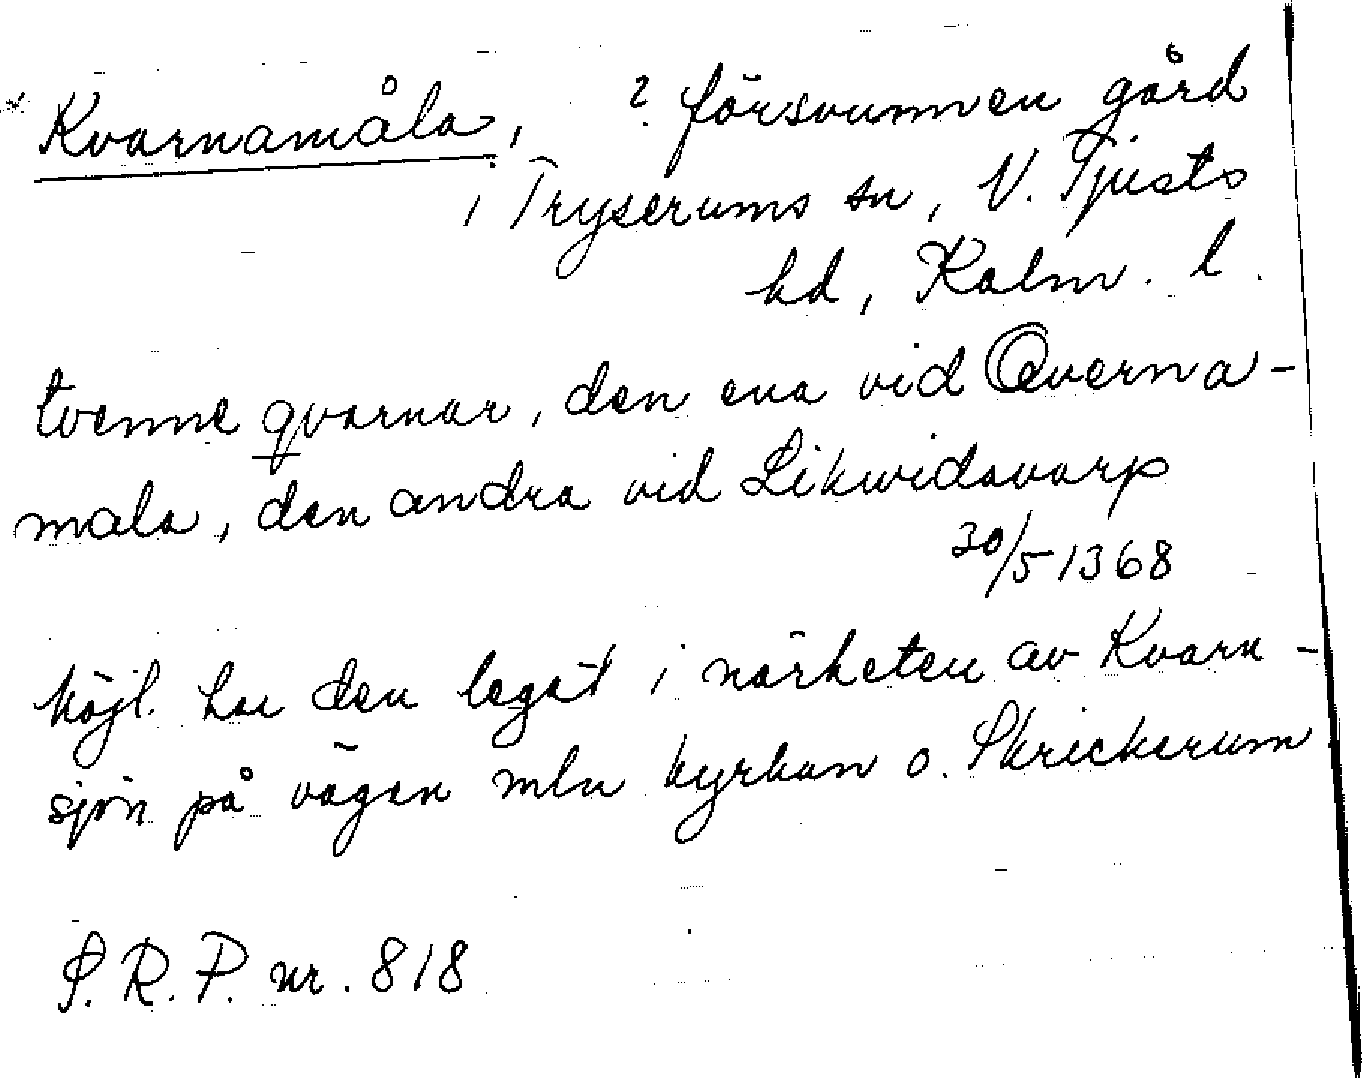 Kvarnamåla, ? försvunnen gård
i Tryserums sn, N. Tjusts
hd, Kalm. l.
tvenne qvarnar, den ena vid Qverna-
mala, den andra vid Likwidavarp
30/5 1368
Möjl. har den legat i närheten av Kvarn-
sjön på vägen mln kyrkan o. Skrickerum
S. R. P. nr. 818